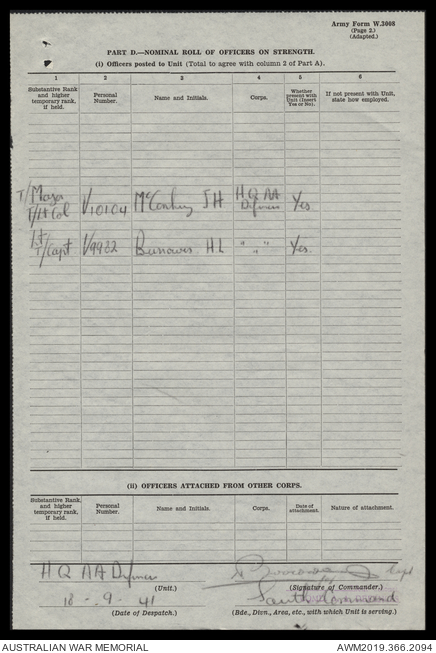 Army Form W.3008
(Page 2.)
(Adapted.)
PART D.—NOMINAL ROLL OF OFFICERS ON STRENGTH.
(i) Officers posted to Unit (Total to agree with column 2 of Part A).
1 2 3 4 5 6
Substantive Rank and higher temporary rank, if held. Personal Number. Name and Initials. Corps. Whether present with Unit (Insert Yes or No). If not present with Unit, state how employed.
T/Major
T/Lt Col V10104 J H H Q AA Defences Yes
Lt
T/Capt V9982 Burrowes H L " " " Yes.
(ii) OFFICERS ATTACHED FROM OTHER CORPS.
Substantive Rank and higher temporary rank, if held. Personal Number. Name and Initials. Corps. Date of attachment. Nature of attachment.
H Q AA Defences Capt
(Unit.) (Signature of Commander.)
18 . 9 . 41 South Command
(Date of Despatch.) (Bde., Divn., Area, etc., with which Unit is serving.)
AUSTRALIAN WAR MEMORIAL AWM2019.366.2094